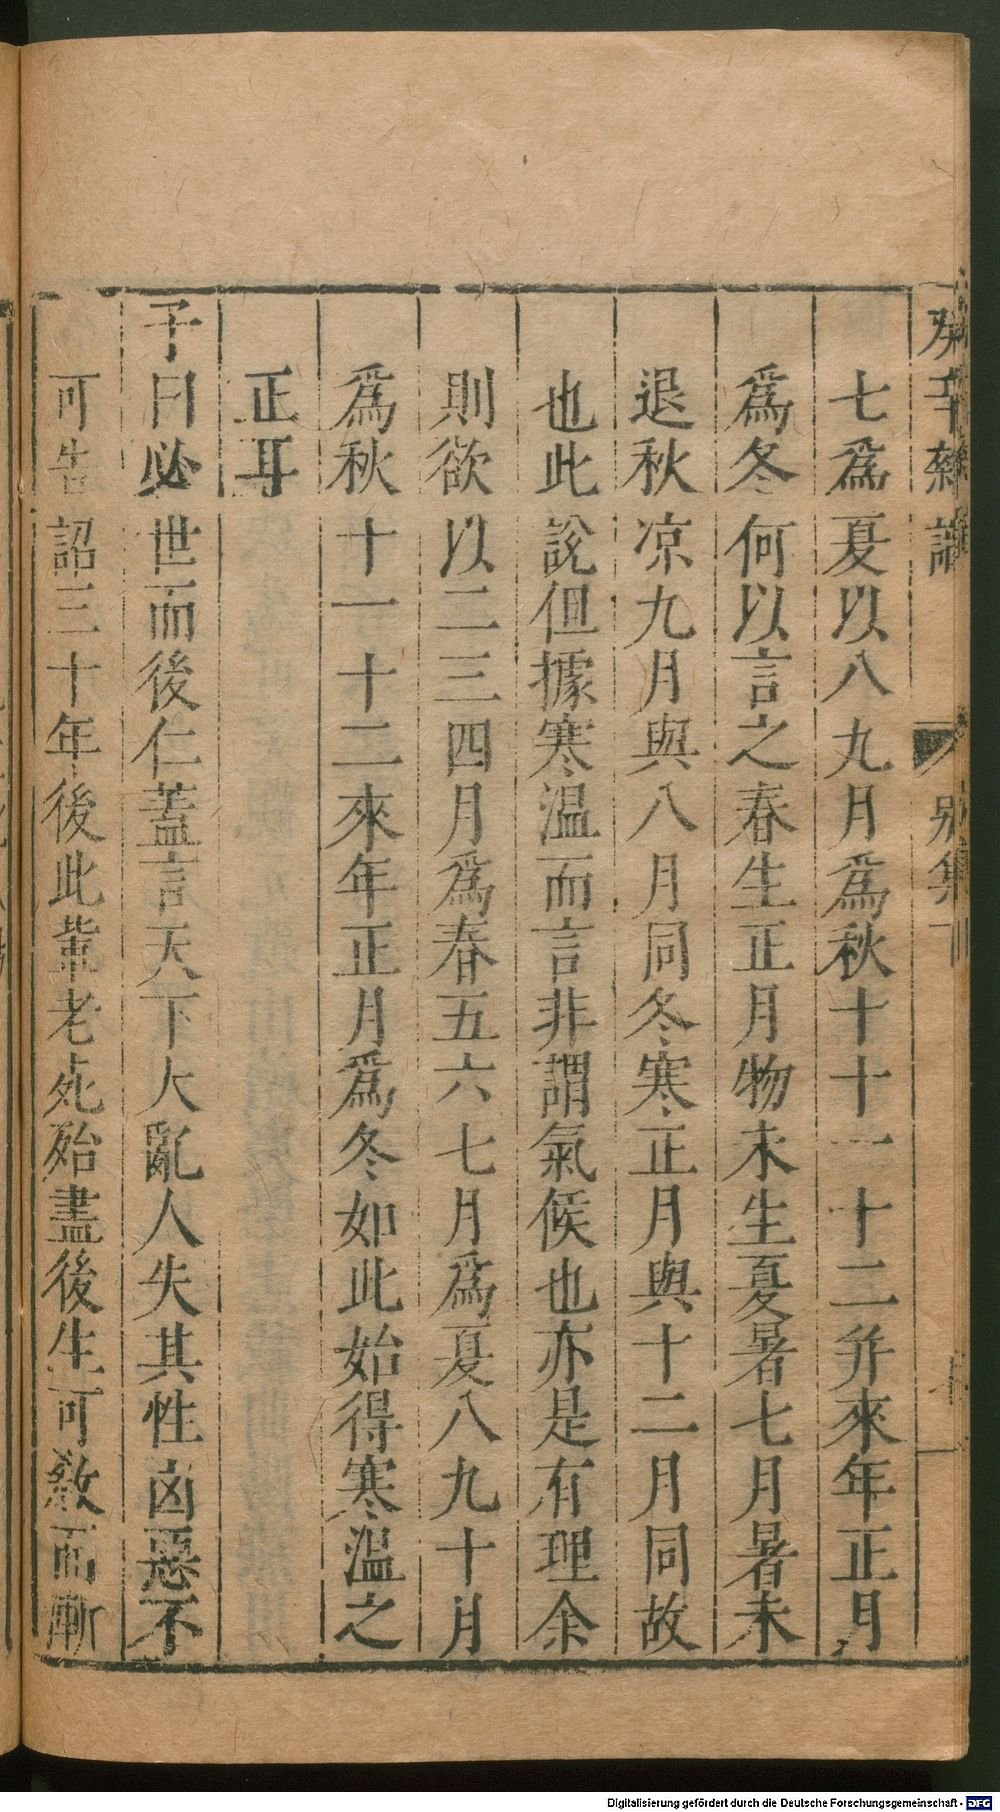 癸辛雜識 別集下
七為夏以八九月為秋十十一十二并來年正月
為冬何以言之春生正月物未生夏暑七月暑未
退秋凉九月與八月同冬寒正月與十二月同故
也此說但據寒溫而言非謂氣候也亦是有理余
則欲以二三四月為春五六七月為夏八九十月
為秋十一十二來年正月為冬如此始得寒溫之
正耳
子曰必世而後仁蓋言天下大亂人失其性凶惡不
可告詔三十年後此輩老死殆盡後生可敎而漸
Digitalisierung gefördert durch die Deutsche Forschungsgemeinschaft - DFG